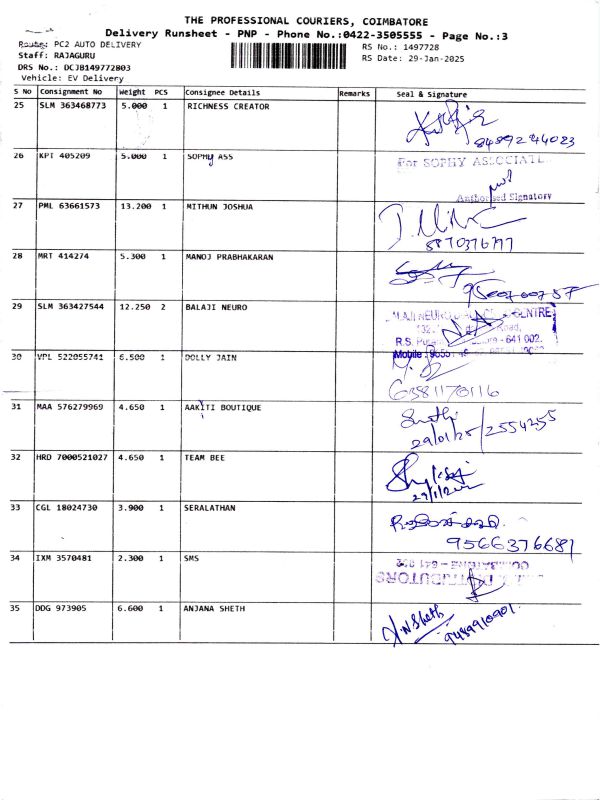 THE PROFESSIONAL COURIERS, COIMBATORE
Delivery Runsheet - PNP - Phone No.:0422-3505555 - Page No.:3
Route: PC2 AUTO DELIVERY
RS No.: 1497728
Staff: RAJAGURU
RS Date: 29-Jan-2025
DRS No.: DCJB149772803
Vehicle: EV Delivery
S No Consignment No Weight PCS Consignee Details Remarks Seal & Signature
25 SLM 363468773 5.000 1 RICHNESS CREATOR
8489244023
26 KPT 405209 5.000 1 SOPHY ASS
For SOPHY ASSOCIATE
Authorised Signatory
27 PML 63661573 13.200 1 MITHUN JOSHUA
28 MRT 414274 5.300 1 MANOJ PRABHAKARAN
29 SLM 363427544 12.250 2 BALAJI NEURO
CENTRE
Road,
R.S. - 641 002.
Mobile
30 VPL 522055741 6.500 1 DOLLY JAIN
6381170116
31 MAA 576279969 4.650 1 AAKITI BOUTIQUE
29/01/25/2554255
32 HRD 7000521027 4.650 1 TEAM BEE
33 CGL 18024730 3.900 1 SERALATHAN
9566376681
34 IXM 3570481 2.300 1 SMS
COIMBATORE - 641 002
DISTRIBUTORS
35 DDG 973905 6.600 1 ANJANA SHETH
N Sheth
9489910901